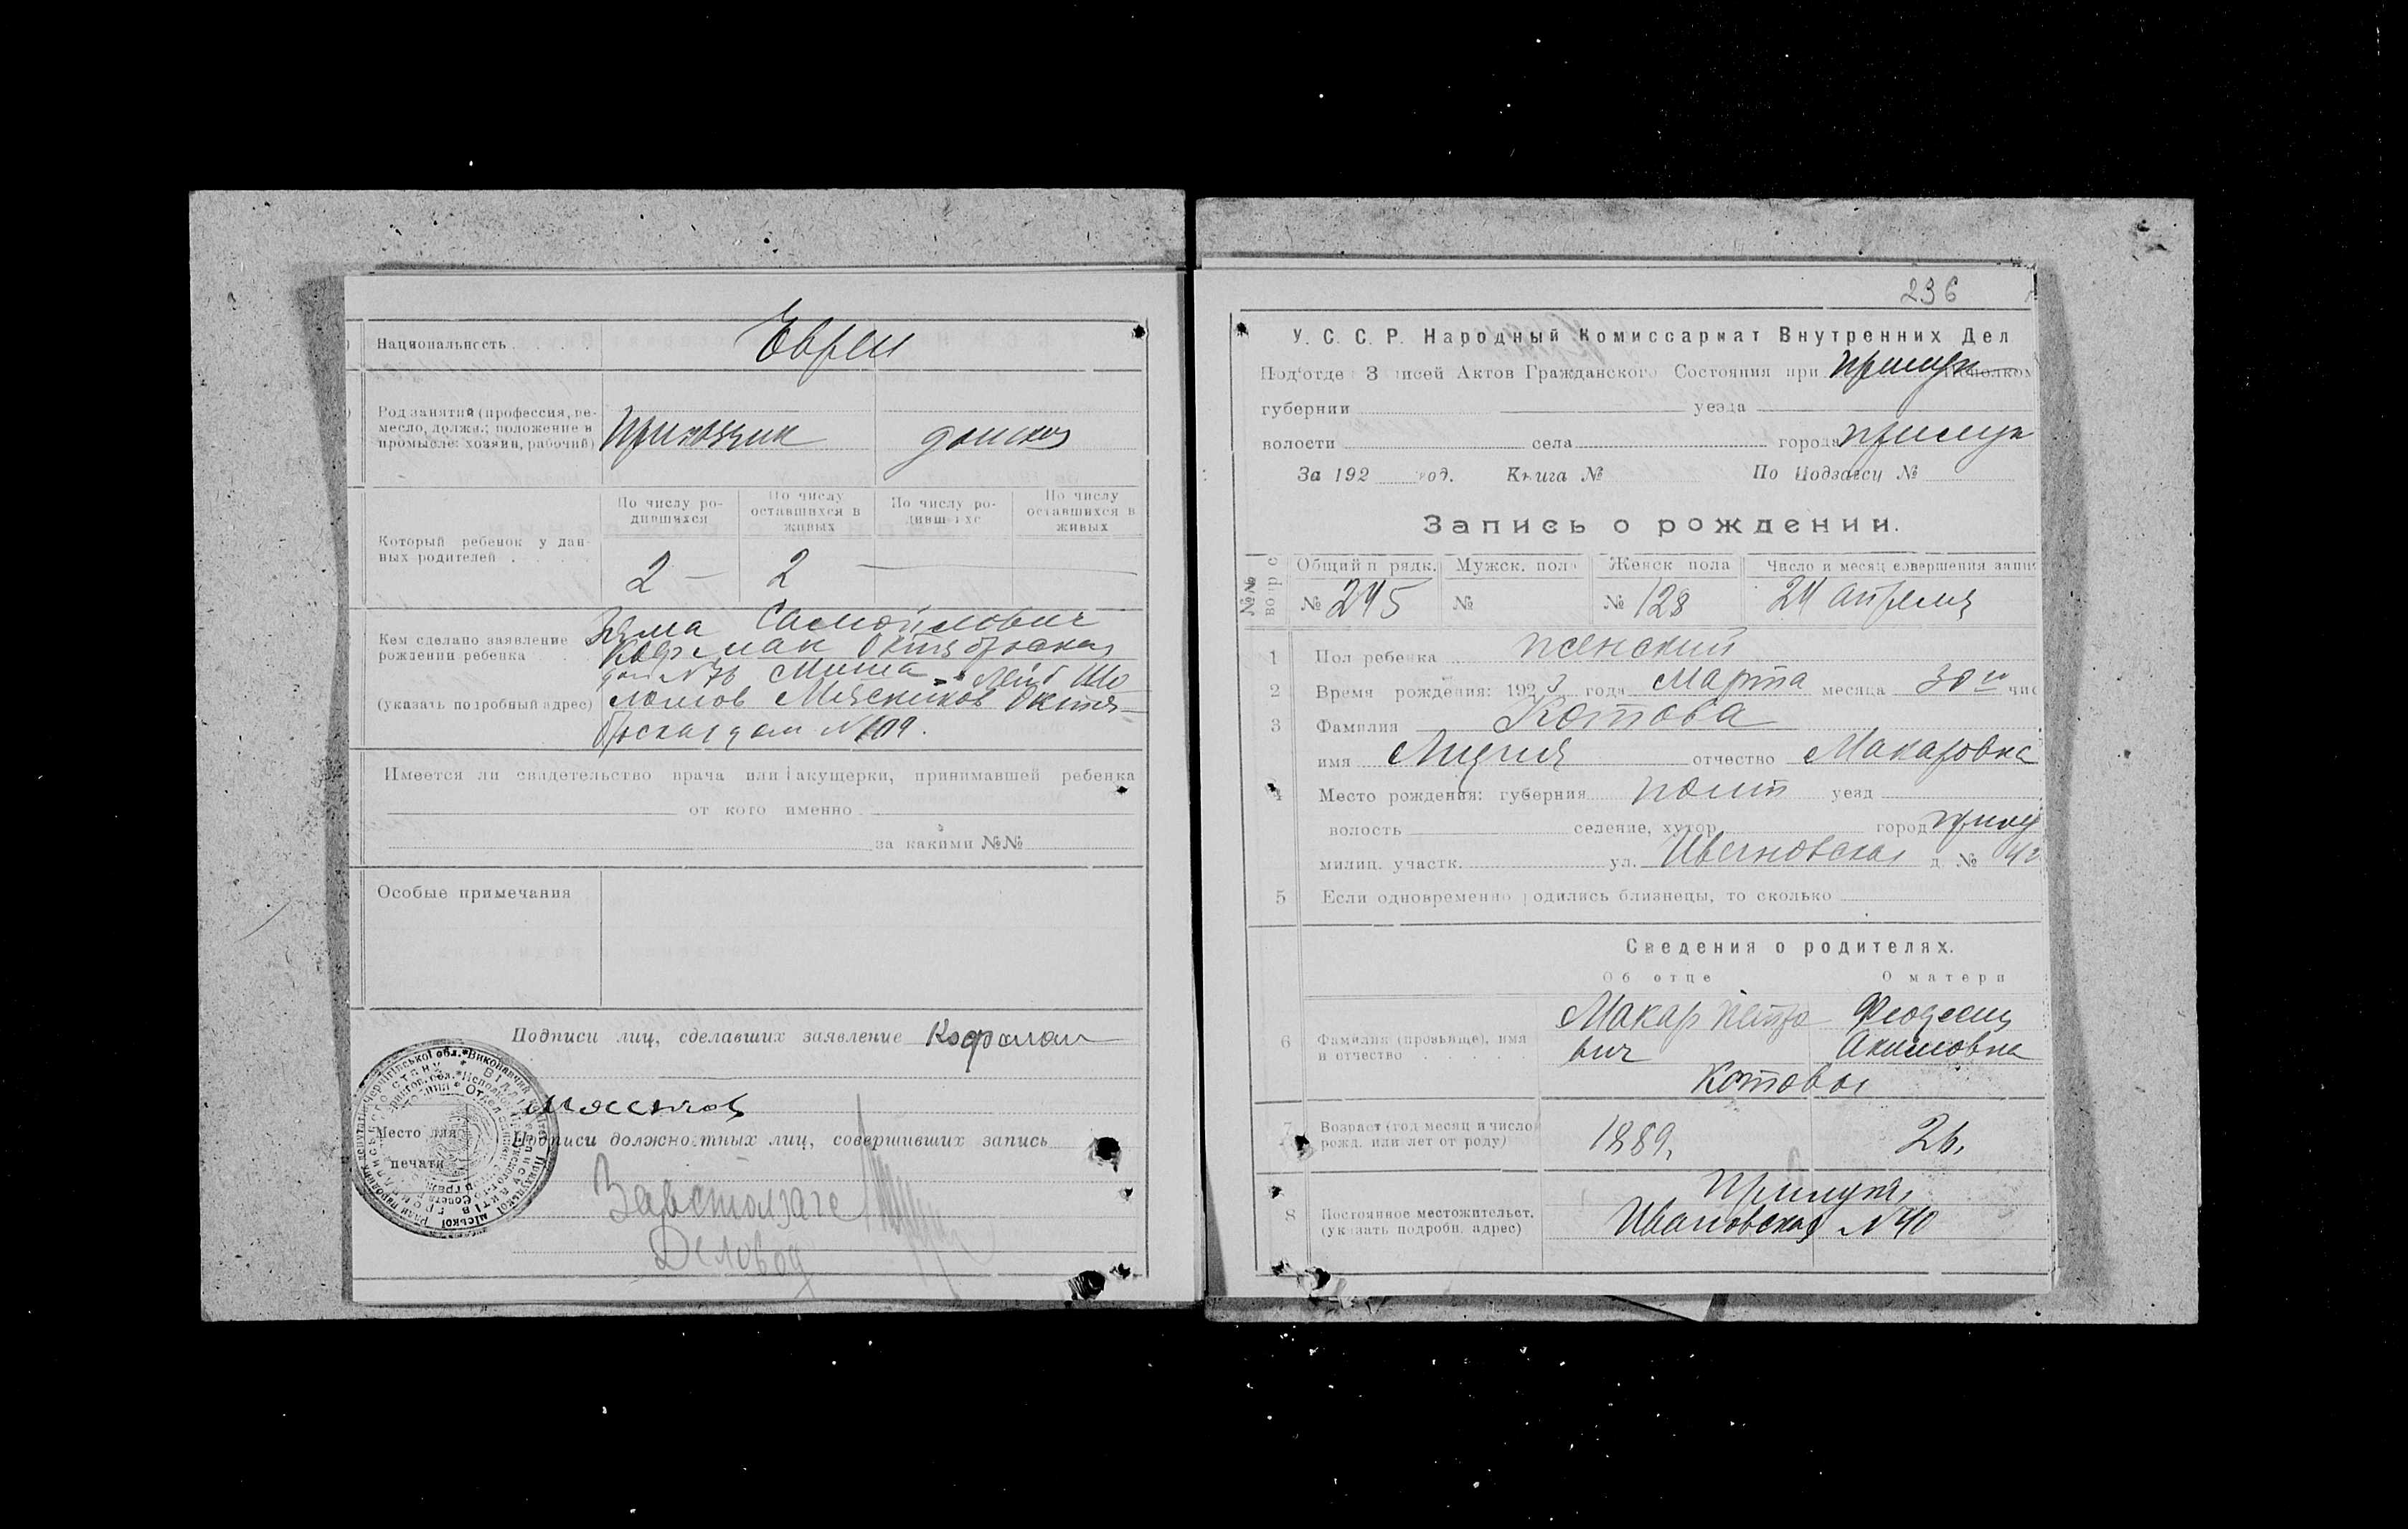 Национальность
Евреи
Род занятий (профессия, ре-
месло, должн.; положение в
промысле: хозяин, рабочий)
Приказчик домохоз
По числу ро-
дившихся
По числу
оставшихся в
живых
По числу ро-
дивш хс
По числу
оставшихся в
живых
Который ребенок у дан-
ных родителей
2 — 2
Кем сделано заявление
рождении ребенка
(указать подробный адрес)
Зяма Самойлович
Кофман Октябрьская
дом №76 Миша - Лейб Шо
ломов Мясников Октя-
брьская дом №109.
Имеется ли свидетельство врача или акушерки, принимавшей ребенка
от кого именно
за какими №№
Особые примечания
Подписи лиц, сделавших заявление Кофман
Мясников
Место для
печати
Подписи должностных лиц, совершивших запись
Завстолзагс
Деловод
236
У. С. С. Р. Народный Комиссариат Внутренних Дел
Под'отде Записей Актов Гражданского Состояния при Прилук Исполком
губернии уезда
волости села города Прилук
За 192 год. Книга № По Подзагсу №
Запись о рождении.
№№
Общий п рядк. Мужск. пол Женск пола Число и месяц совершения запи
№ 245 № № 128 24 апреля
1 Пол ребенка женский
2 Время рождения: 1923 года Марта месяца 30го чис
3 Фамилия Котова
имя Лидия отчество Макаровна
4 Место рождения: губерния Полт уезд
волость селение, хутор город Прилу
милиц. участк. ул. Ивановская д. №
5 Если одновременно родились близнецы, то сколько
Сведения о родителях.
Об отце О матери
6 Фамилия (прозвище), имя
и отчество
Макар Петро
вич
Феодосия
Акимовна
Котовы
7 Возраст (год месяц и число
рожд. или лет от роду)
1889. 26.
8 Постоянное местожительст.
(указать подробн. адрес)
Прилуки,
Ивановская №40